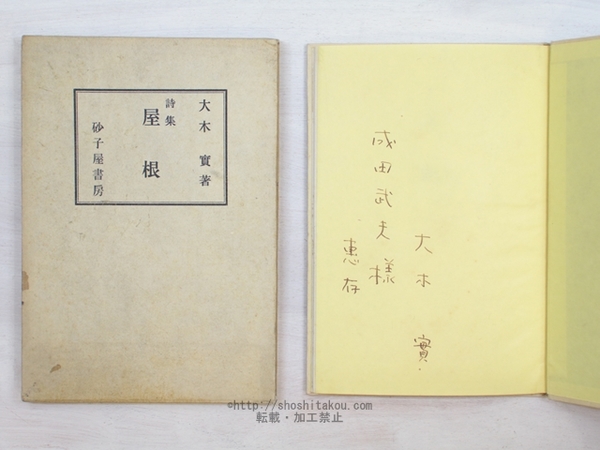 大木實著
詩集
屋根
砂子屋書房
大木實
成田武夫様
恵存
©http://shoshitakou.com/
転載・加工禁止